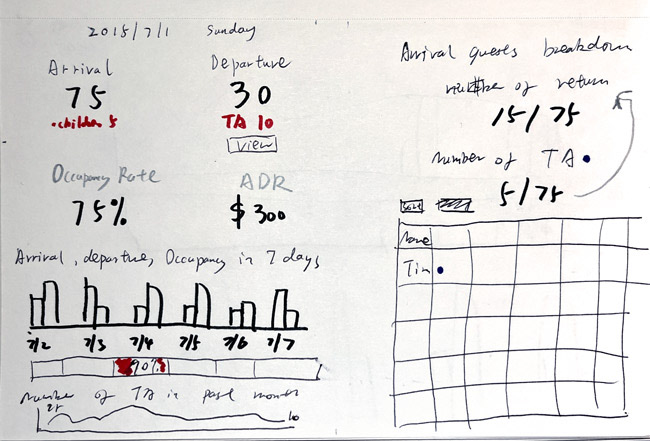 2015/7/1 Sunday
Arrival
75
·children 5
Departure
30
TA 10
View
Occupancy Rate
75%
ADR
$300
Arrival, departure, Occupancy in 7 days
7/2 7/3 7/4 7/5 7/6 7/7
90%
Number of TA in past month
25
10
Arrival guests breakdown
number of return
15/75
number of TA
5/75
Name
Tim